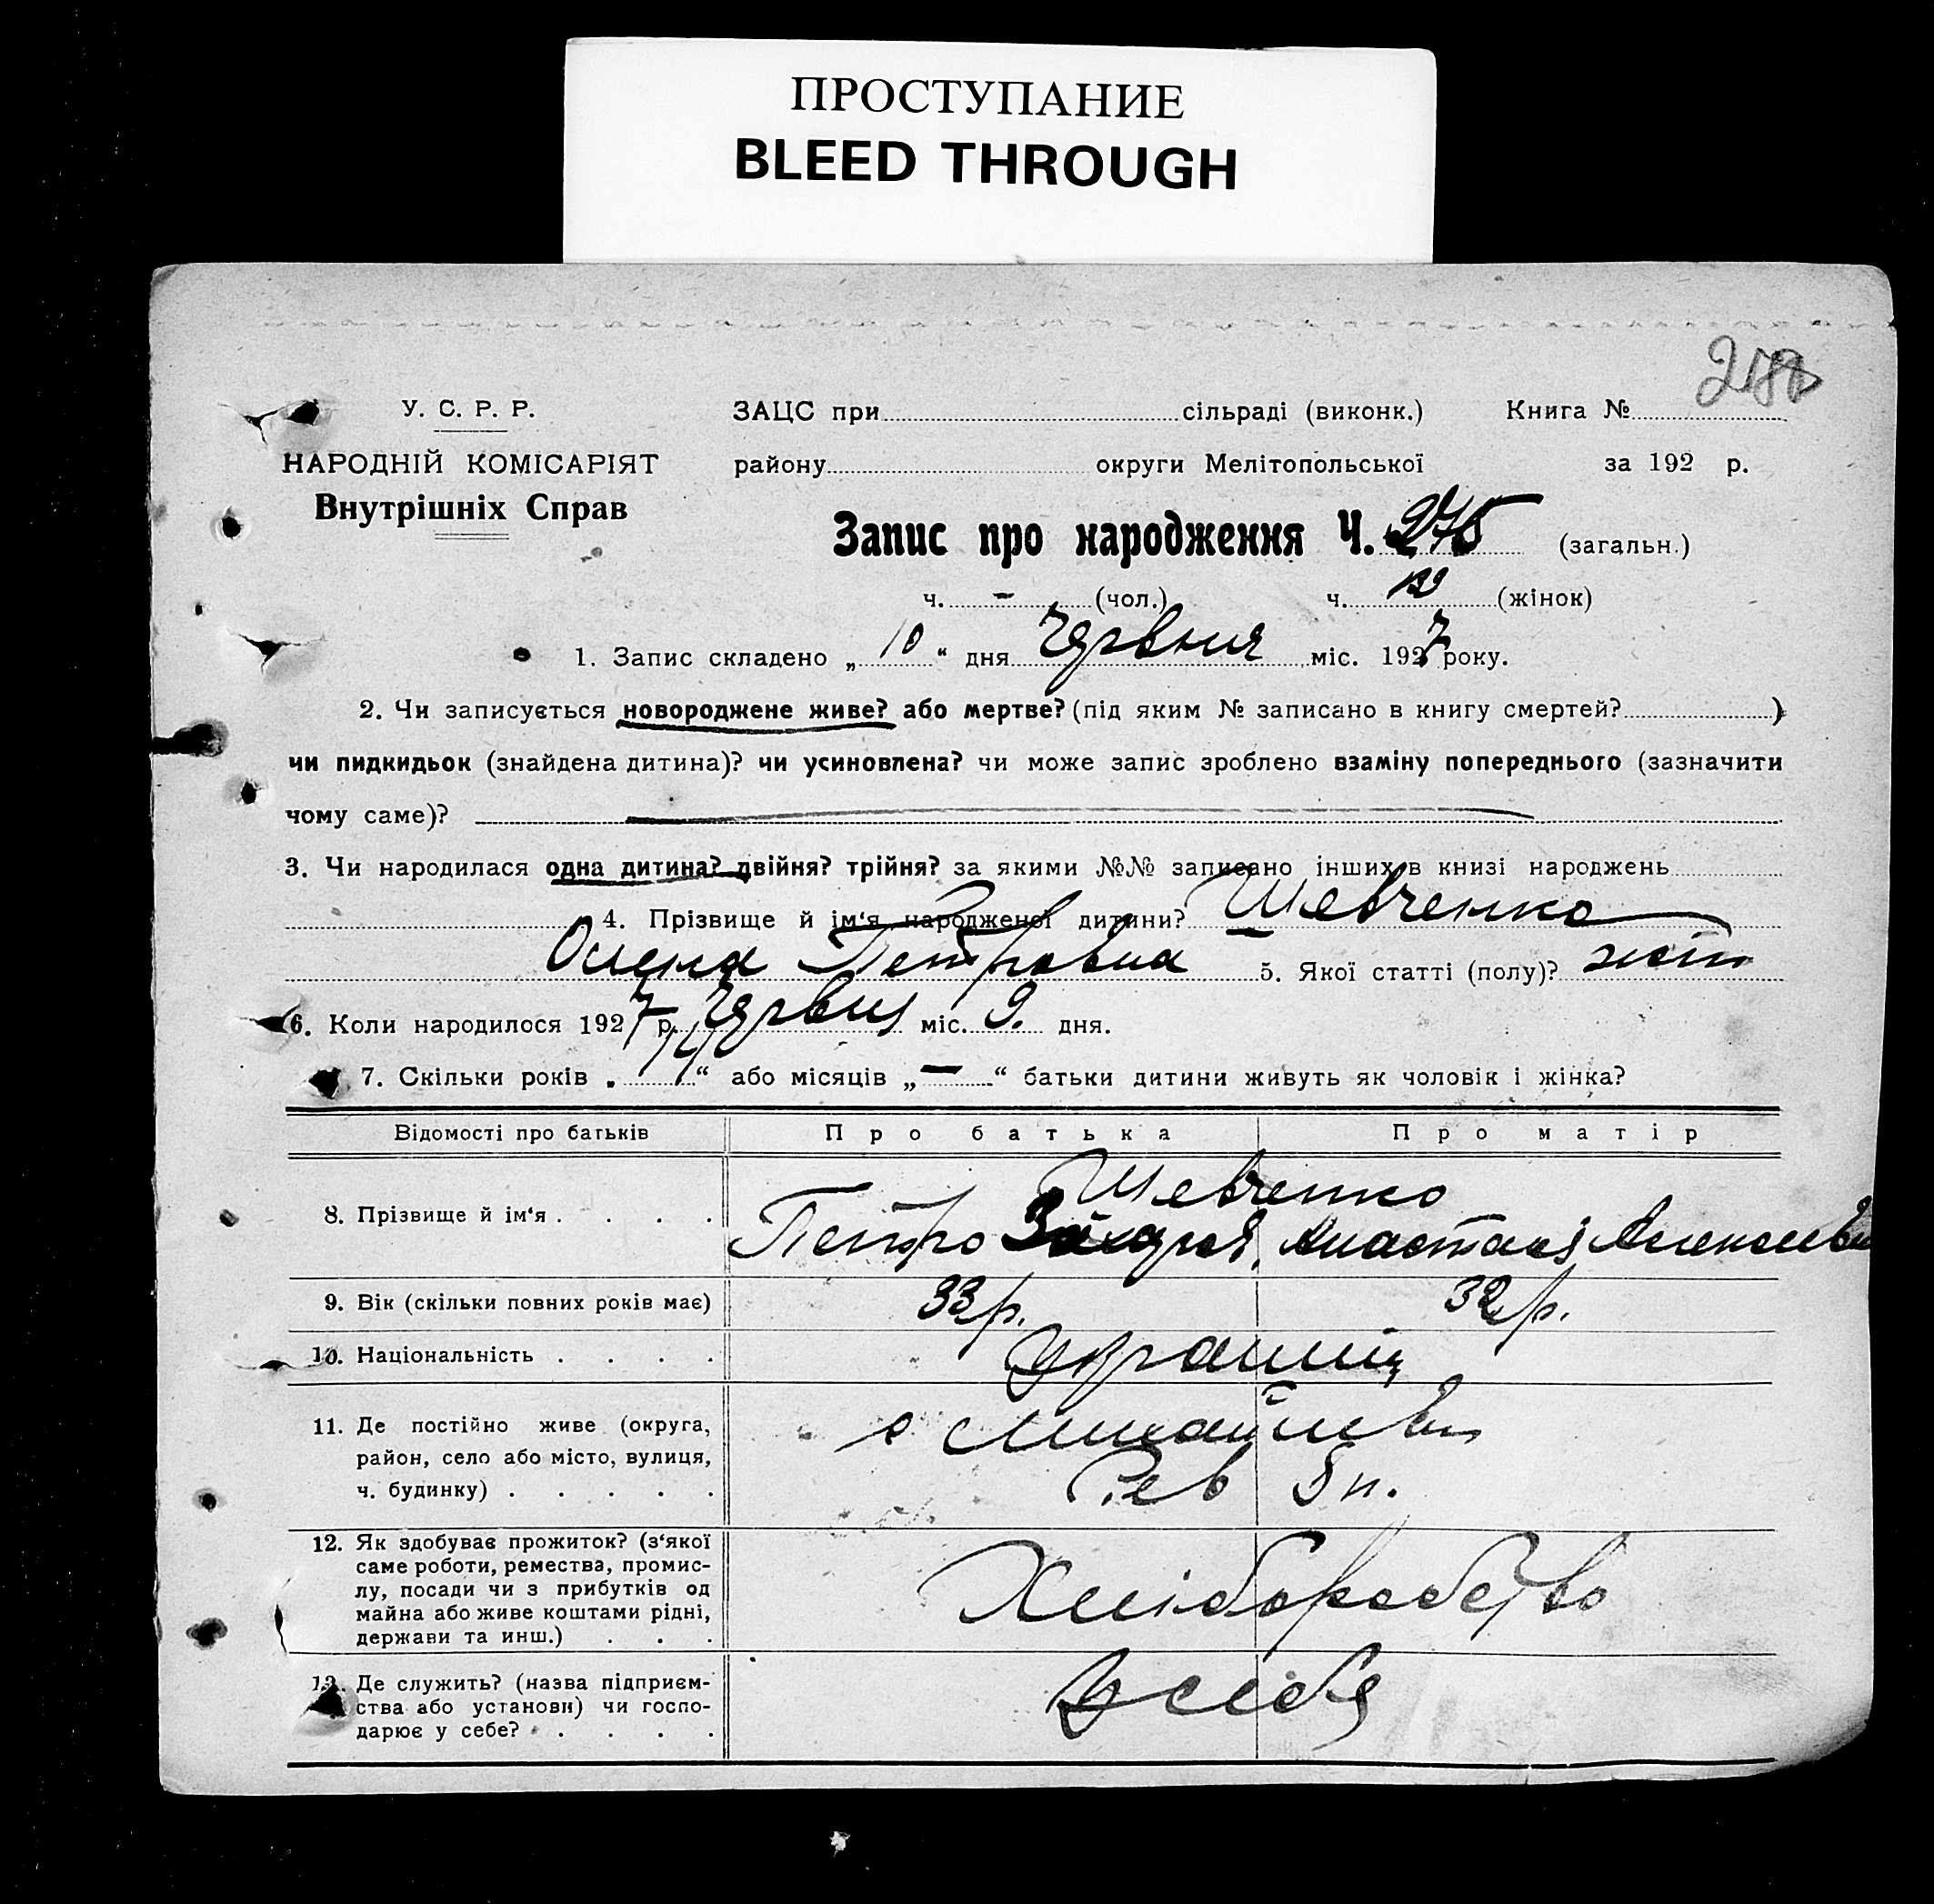 ПРОСТУПАНИЕ
BLEED THROUGH
У. С. Р. Р.
НАРОДНІЙ КОМІСАРІЯТ
Внутрішніх Справ
ЗАЦС при сільраді (виконк.) Книга №
району округи Мелітопольської за 192 р.
Запис про народження Ч. 275 (загальн.)
ч. - (чол.) ч. (жінок)
1. Запис складено „ 10 “ дня Червня міс. 1927 року.
2. Чи записується новороджене живе? або мертве? (під яким № записано в книгу смертей? )
чи пидкидьок (знайдена дитина)? чи усиновлена? чи може запис зроблено взаміну попереднього (зазначити
чому саме)?
3. Чи народилася одна дитина? двійня? трійня? за якими №№ записано інших в книзі народжень
4. Прізвище й ім‘я народженої дитини? Шевченко
Олена Петровна 5. Якої статті (полу)? жін
6. Коли народилося 1927 р. Червня міс. 9. дня.
7. Скільки років „ 14 “ або місяців „ — “ батьки дитини живуть як чоловік і жінка?
Відомості про батьків Про батька Про матір
8. Прізвище й ім‘я . . . . Шевченко
Петро Анастасія
9. Вік (скільки повних років має) 33 р. 32 р.
10. Національність . . . . Україниці
11. Де постійно живе (округа,
район, село або місто, вулиця,
ч. будинку) . . . . .
с Михайлівка
Рев
12. Як здобуває прожиток? (з‘якої
саме роботи, ремества, промис-
лу, посади чи з прибутків од
майна або живе коштами рідні,
держави та инш.) . . .
Хліборобство
13. Де служить? (назва підприєм-
ства або установи) чи госпо-
дарює у себе? . . . .
У себе